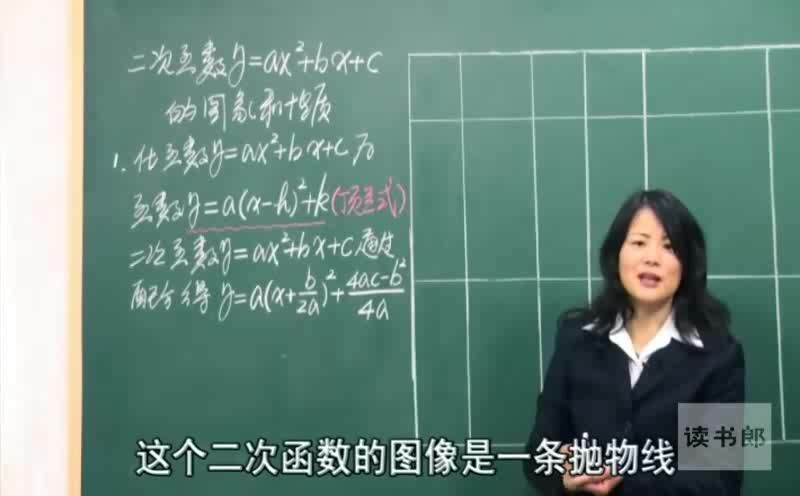 二次函数y=ax²+bx+c
的图象和性质
1.化函数y=ax²+bx+c为
函数y=a(x-h)²+k(顶点式)
二次函数y=ax²+bx+c通过
配方得y=a(x+b/2a)²+4ac-b²/4a
读书郎
这个二次函数的图像是一条抛物线